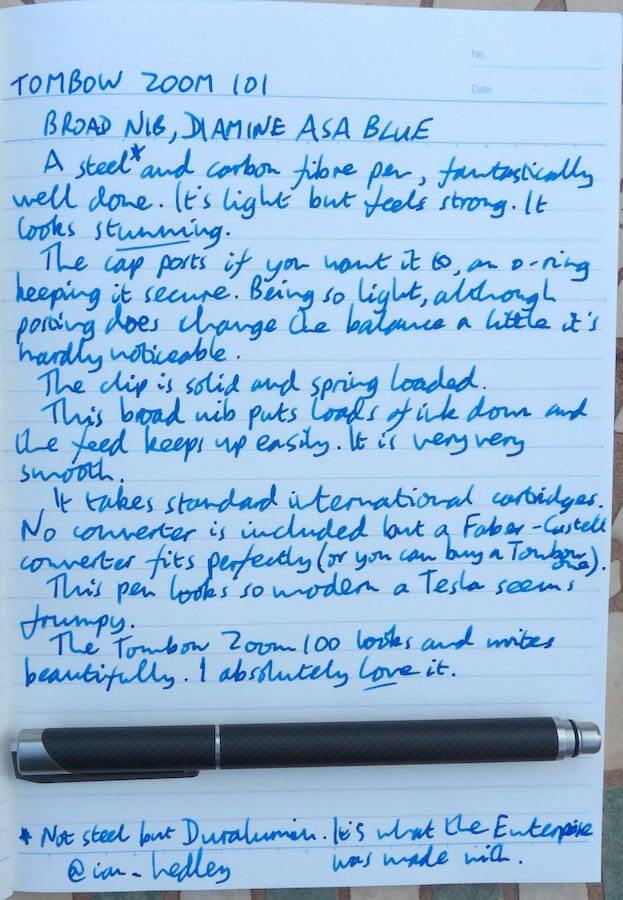 No.
Date
TOMBOW ZOOM 101
BROAD NIB, DIAMINE ASA BLUE
A steel* and carbon fibre pen, fantastically
well done. It's light but feels strong. It
looks stunning.
The cap posts if you want it to, an o-ring
keeping it secure. Being so light, although
posting does change the balance a little it's
hardly noticeable.
The clip is solid and spring loaded.
This broad nib puts loads of ink down and
the feed keeps up easily. It is very very
smooth.
It takes standard international cartridges.
No converter is included but a Faber-Castell
converter fits perfectly (or you can buy a Tombow
one).
This pen looks so modern a Tesla seems
frumpy.
The Tombow Zoom 100 looks and writes
beautifully. I absolutely love it.
* Not steel but Duralumin. It's what the Enterprise
@ian_hedley was made with.